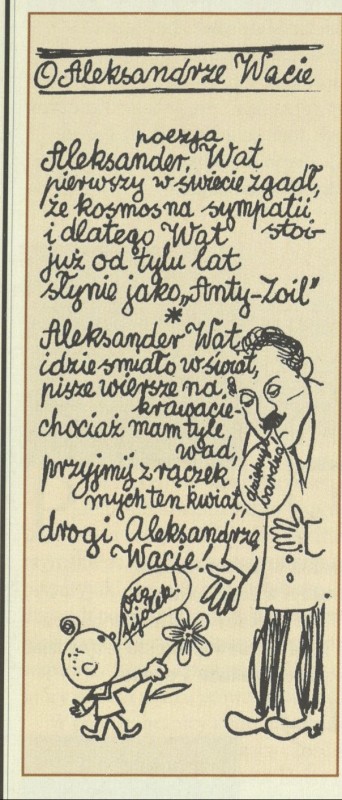 O Aleksandrze Wacie
poezja
Aleksander, Wat
pierwszy w świecie zgadł,
że kosmos na sympatii
stoi
i dlatego Wat
już od tylu lat
słynie jako „Anty-Zoil"
*
Aleksander Wat,
idzie śmiało w świat,
pisze wiersze na
krawacie-
chociaż mam tyle
wad,
przyjmij z rączek
mych ten kwiat,
drogi Aleksandrze
Wacie!
dziękuję
bardzo
oto
fijołek!